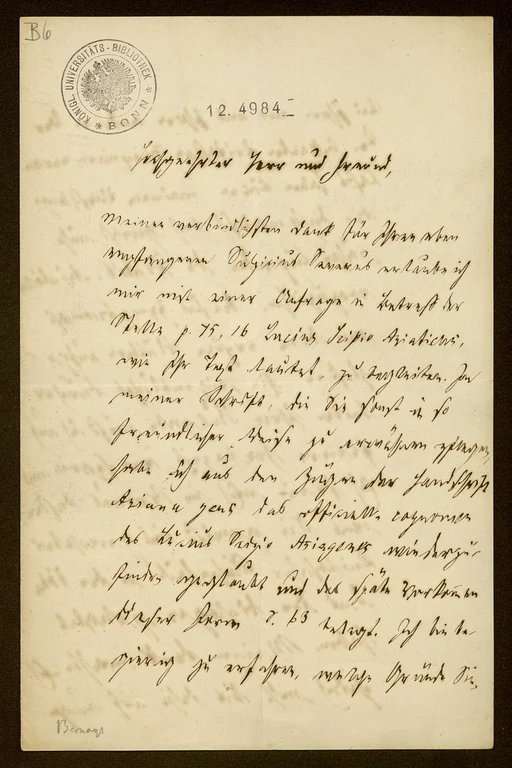 B6
KÖNIGL. UNIVERSITÄTS-BIBLIOTHEK
* BONN *
12. 4984.
Hochgeehrter Herr und Freund,
Meinen verbindlichsten Dank für Ihren eben
empfangenen Sulpicius Severus erlaube ich
mir mit einer Anfrage in Betreff der
Stelle p. 75, 16 Lucius Scipio Asiaticus,
wie Ihr Text lautet, zu begleiten. In
meiner Schrift, die Sie sonst in so
freundlicher Weise zu erwähnen pflegen,
habe ich aus den Zügen der Handschrift
Asiana gens das officielle cognomen
des Lucius Scipio Asiagenes wiederzu-
finden geglaubt und das späte Vorkommen
dieser Form S. 63 belegt. Ich bin be-
gierig zu erfahren, welche Gründe Sie,
Bernays